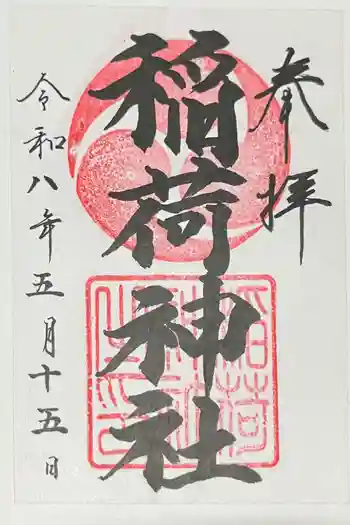 奉拝
稲荷神社
令和八年五月十五日